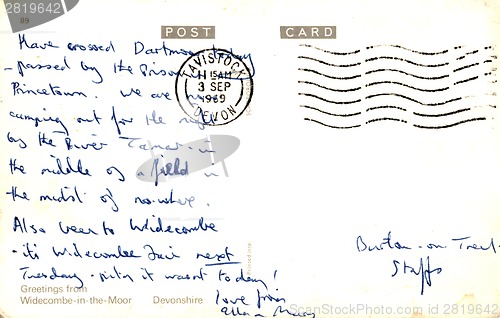 2819642
89
POST CARD
Have crossed Dartmoor today
- passed by the Prison
Princetown. We are
camping out for the night
by the River Tamar - in
the middle of a field in
the midst of nowhere.
Also been to Widecombe
- it's Widecombe Fair next
Tuesday - pity it wasn't today!
love from
TAVISTOCK
11 15AM
3 SEP
1969
DEVON
Burton-on-Trent
Staffs
Greetings from
Widecombe-in-the-Moor Devonshire
© Stockfresh.com / 2819642